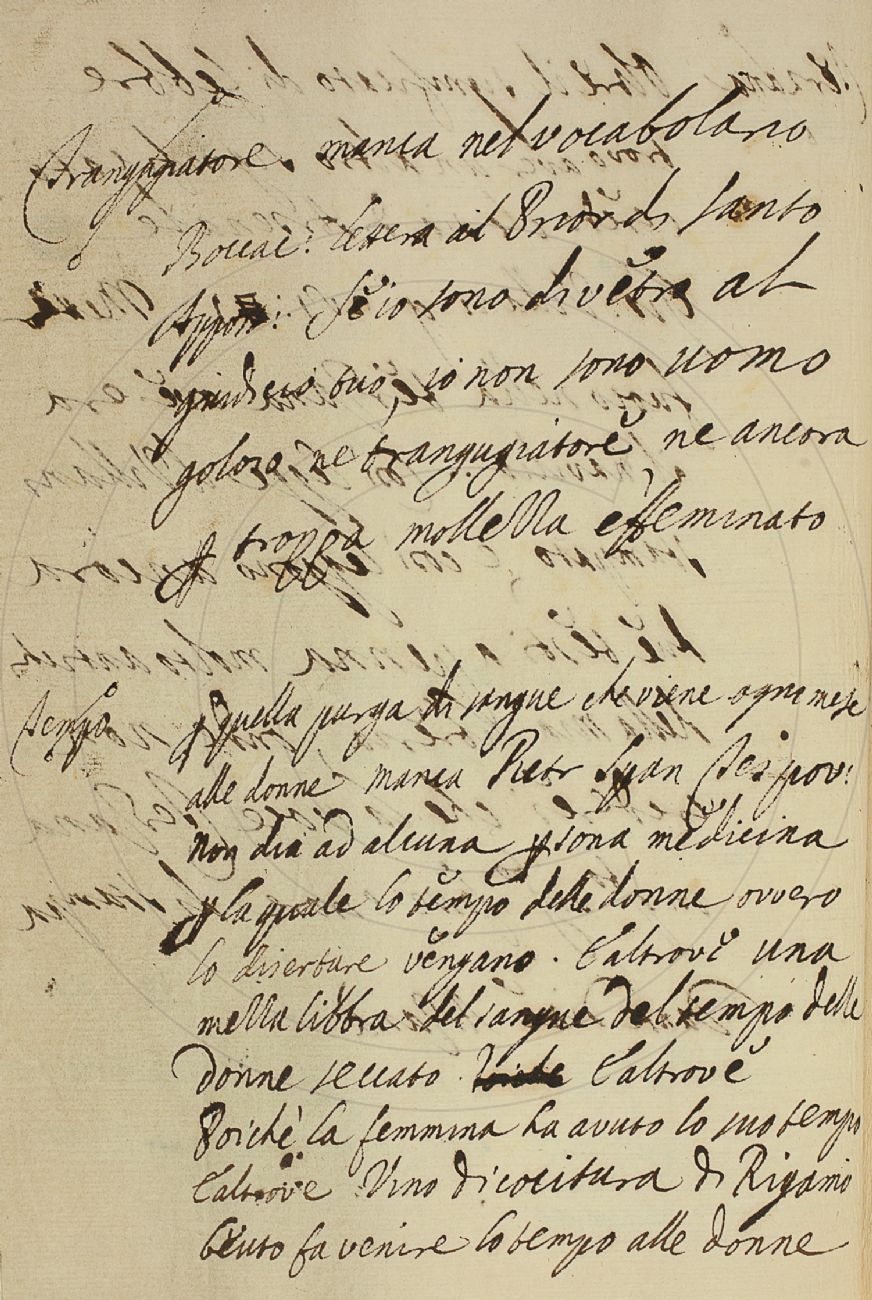 Trangugiatore. manca nel vocabolario
Boccac: Lettera al Prior di Santo
Appost: Se io sono di vetro al
giudicio tuo, io non sono uomo
goloso ne trangugiatore, ne ancora
p troppa mollezza effeminato
Tempo p quella purga di sangue che viene ogni mese
alle donne manca Pietr Span Tes pov:
non dia ad alcuna psona medicina
p la quale lo tempo delle donne ovvero
lo disertare vengano. E altrove una
mezza libbra del sangue del tempo delle
donne seccato. E altrove
Poichè la femmina ha avuto lo suo tempo
E altrove Vino di cocitura di Rigamo
beuto fa venire lo tempo alle donne